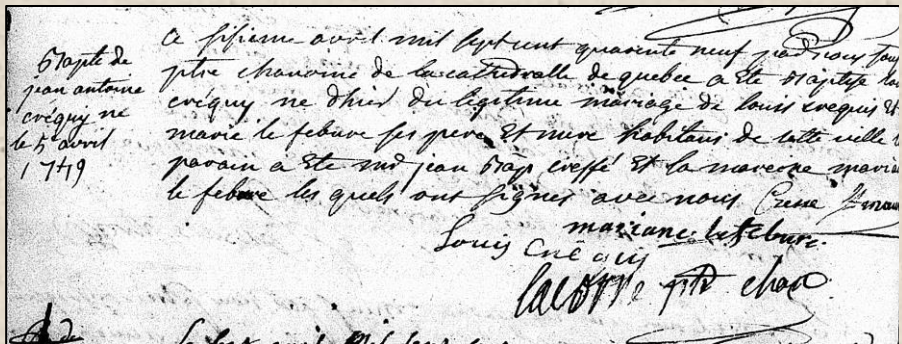 Bapte de
jean antoine
créquy né
le 5 avril
1749
Ce sisieme avril mil sept cent quarante neuf par nous
ptre chanoine de la cathedralle de quebec a ete baptisé
créquy ne d'hier du legitime mariage de louis crequis et
marie le febure ses pere et mere habitans de cette ville
parain a ete mr jean bap creffé et la mareine marian
le febure les quels ont signés avec nous
mariane lefebure
Louis Créquy
lacorne ptr chan